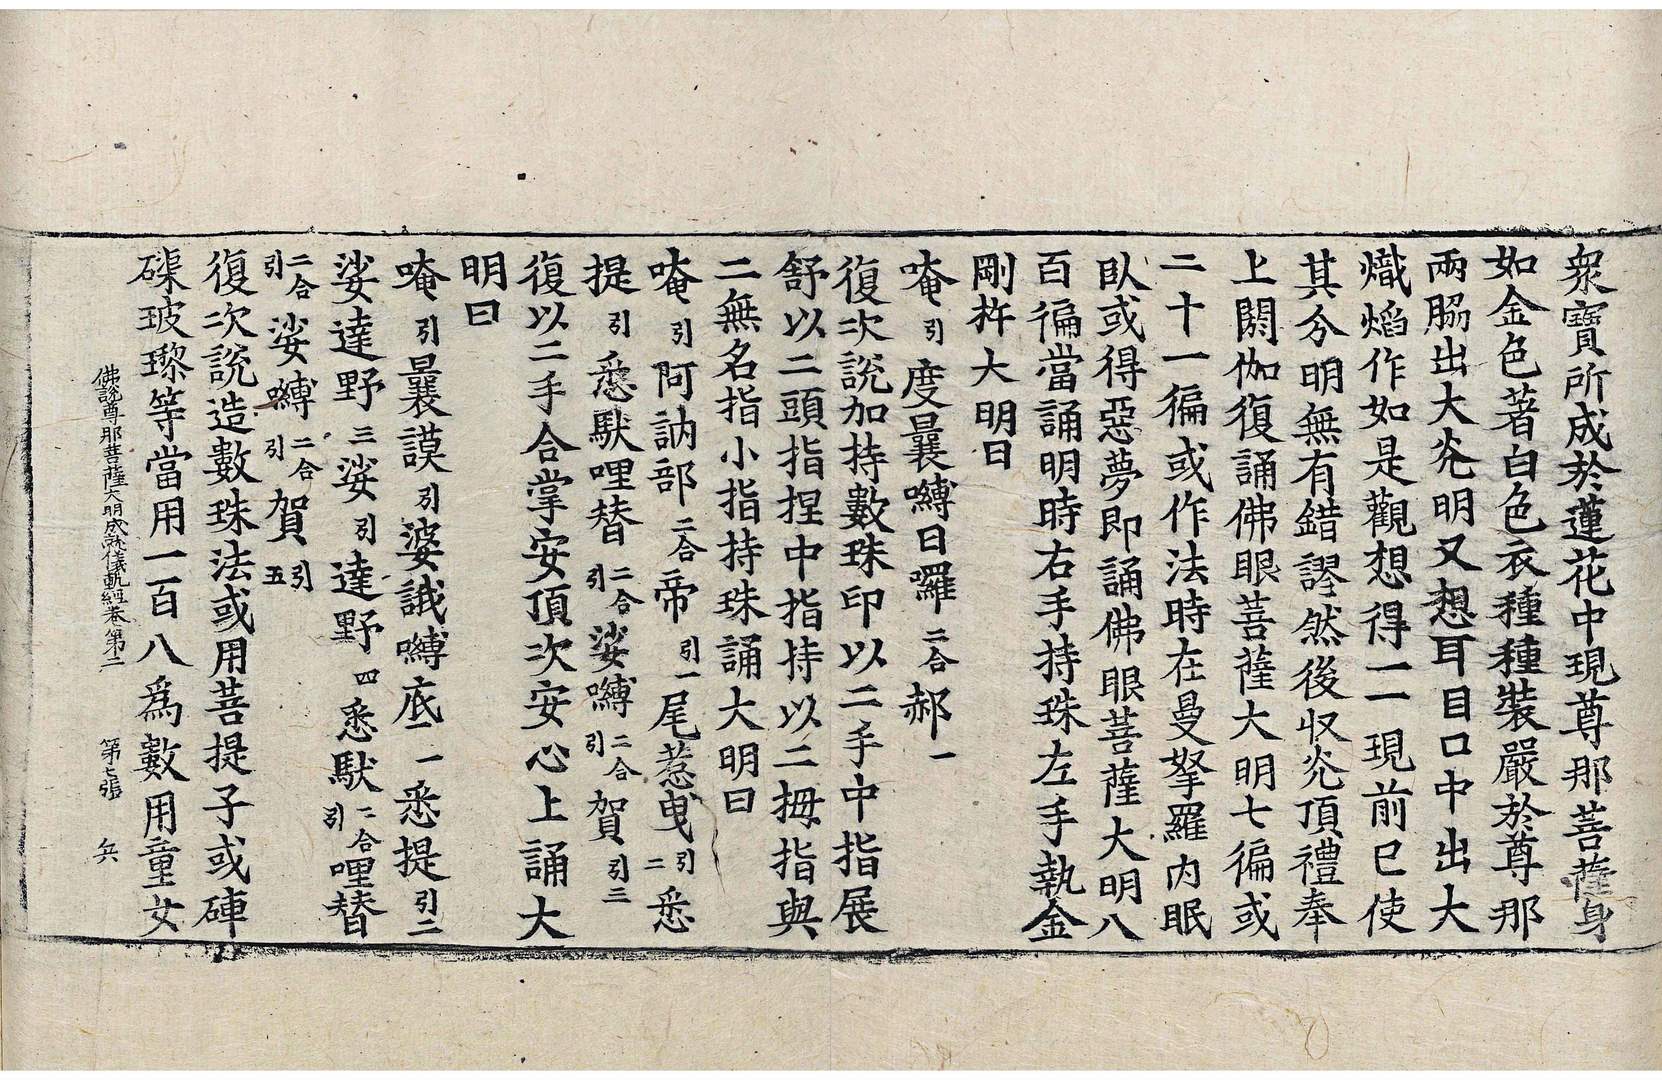 衆寶所成於蓮花中現尊那菩薩身
如金色著白色衣種種裝嚴於尊那
兩脇出大光明又想耳目口中出大
熾焰作如是觀想得一一現前已使
其分明無有錯謬然後收光頂禮奉
上閼伽復誦佛眼菩薩大明七徧或
二十一徧或作法時在曼拏羅內眠
臥或得惡夢即誦佛眼菩薩大明八
百徧當誦明時右手持珠左手執金
剛杵大明曰
唵引度曩嚩日囉二合郝一
復次說加持數珠印以二手中指展
舒以二頭指捏中指持以二拇指與
二無名指小指持珠誦大明曰
唵引阿訥部二合帝引一尾惹曳引二悉
提引悉馱哩替二合引娑嚩二合引賀引三
復以二手合掌安頂次安心上誦大
明曰
唵引曩謨引婆誐嚩底一悉提引二
娑達野三娑引達野四悉馱二合引哩替
二合引娑嚩二合引賀引五
復次說造數珠法或用菩提子或硨
磲玻瓈等當用一百八爲數用童女
佛說尊那菩薩大明成就儀軌經卷第二 第七張 兵